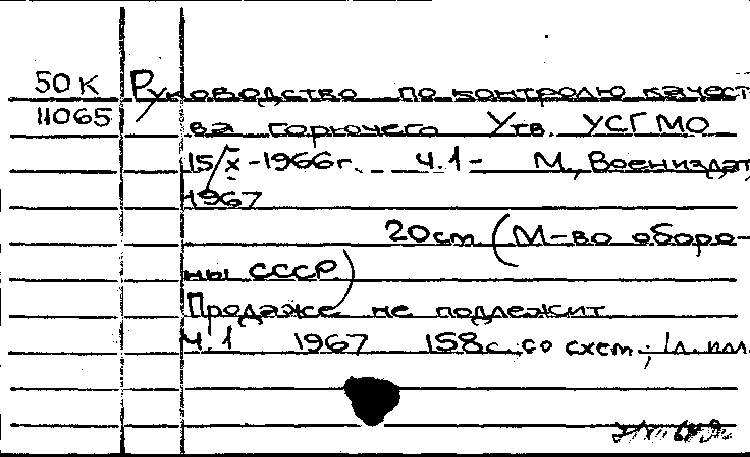 50К Руководство по контролю качест
11065 ва горючего Утв. УСГМО
15/X-1966г. Ч.1- М., Воениздат,
1967
20см. (М-во оборо-
ны СССР)
Продаже не подлежит
Ч.1 1967 158с. со схем.; 1л. илл.